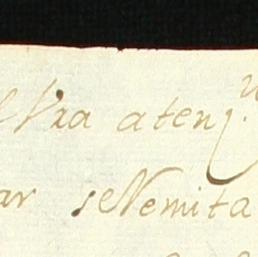 Vra atenz.
ar seRemita